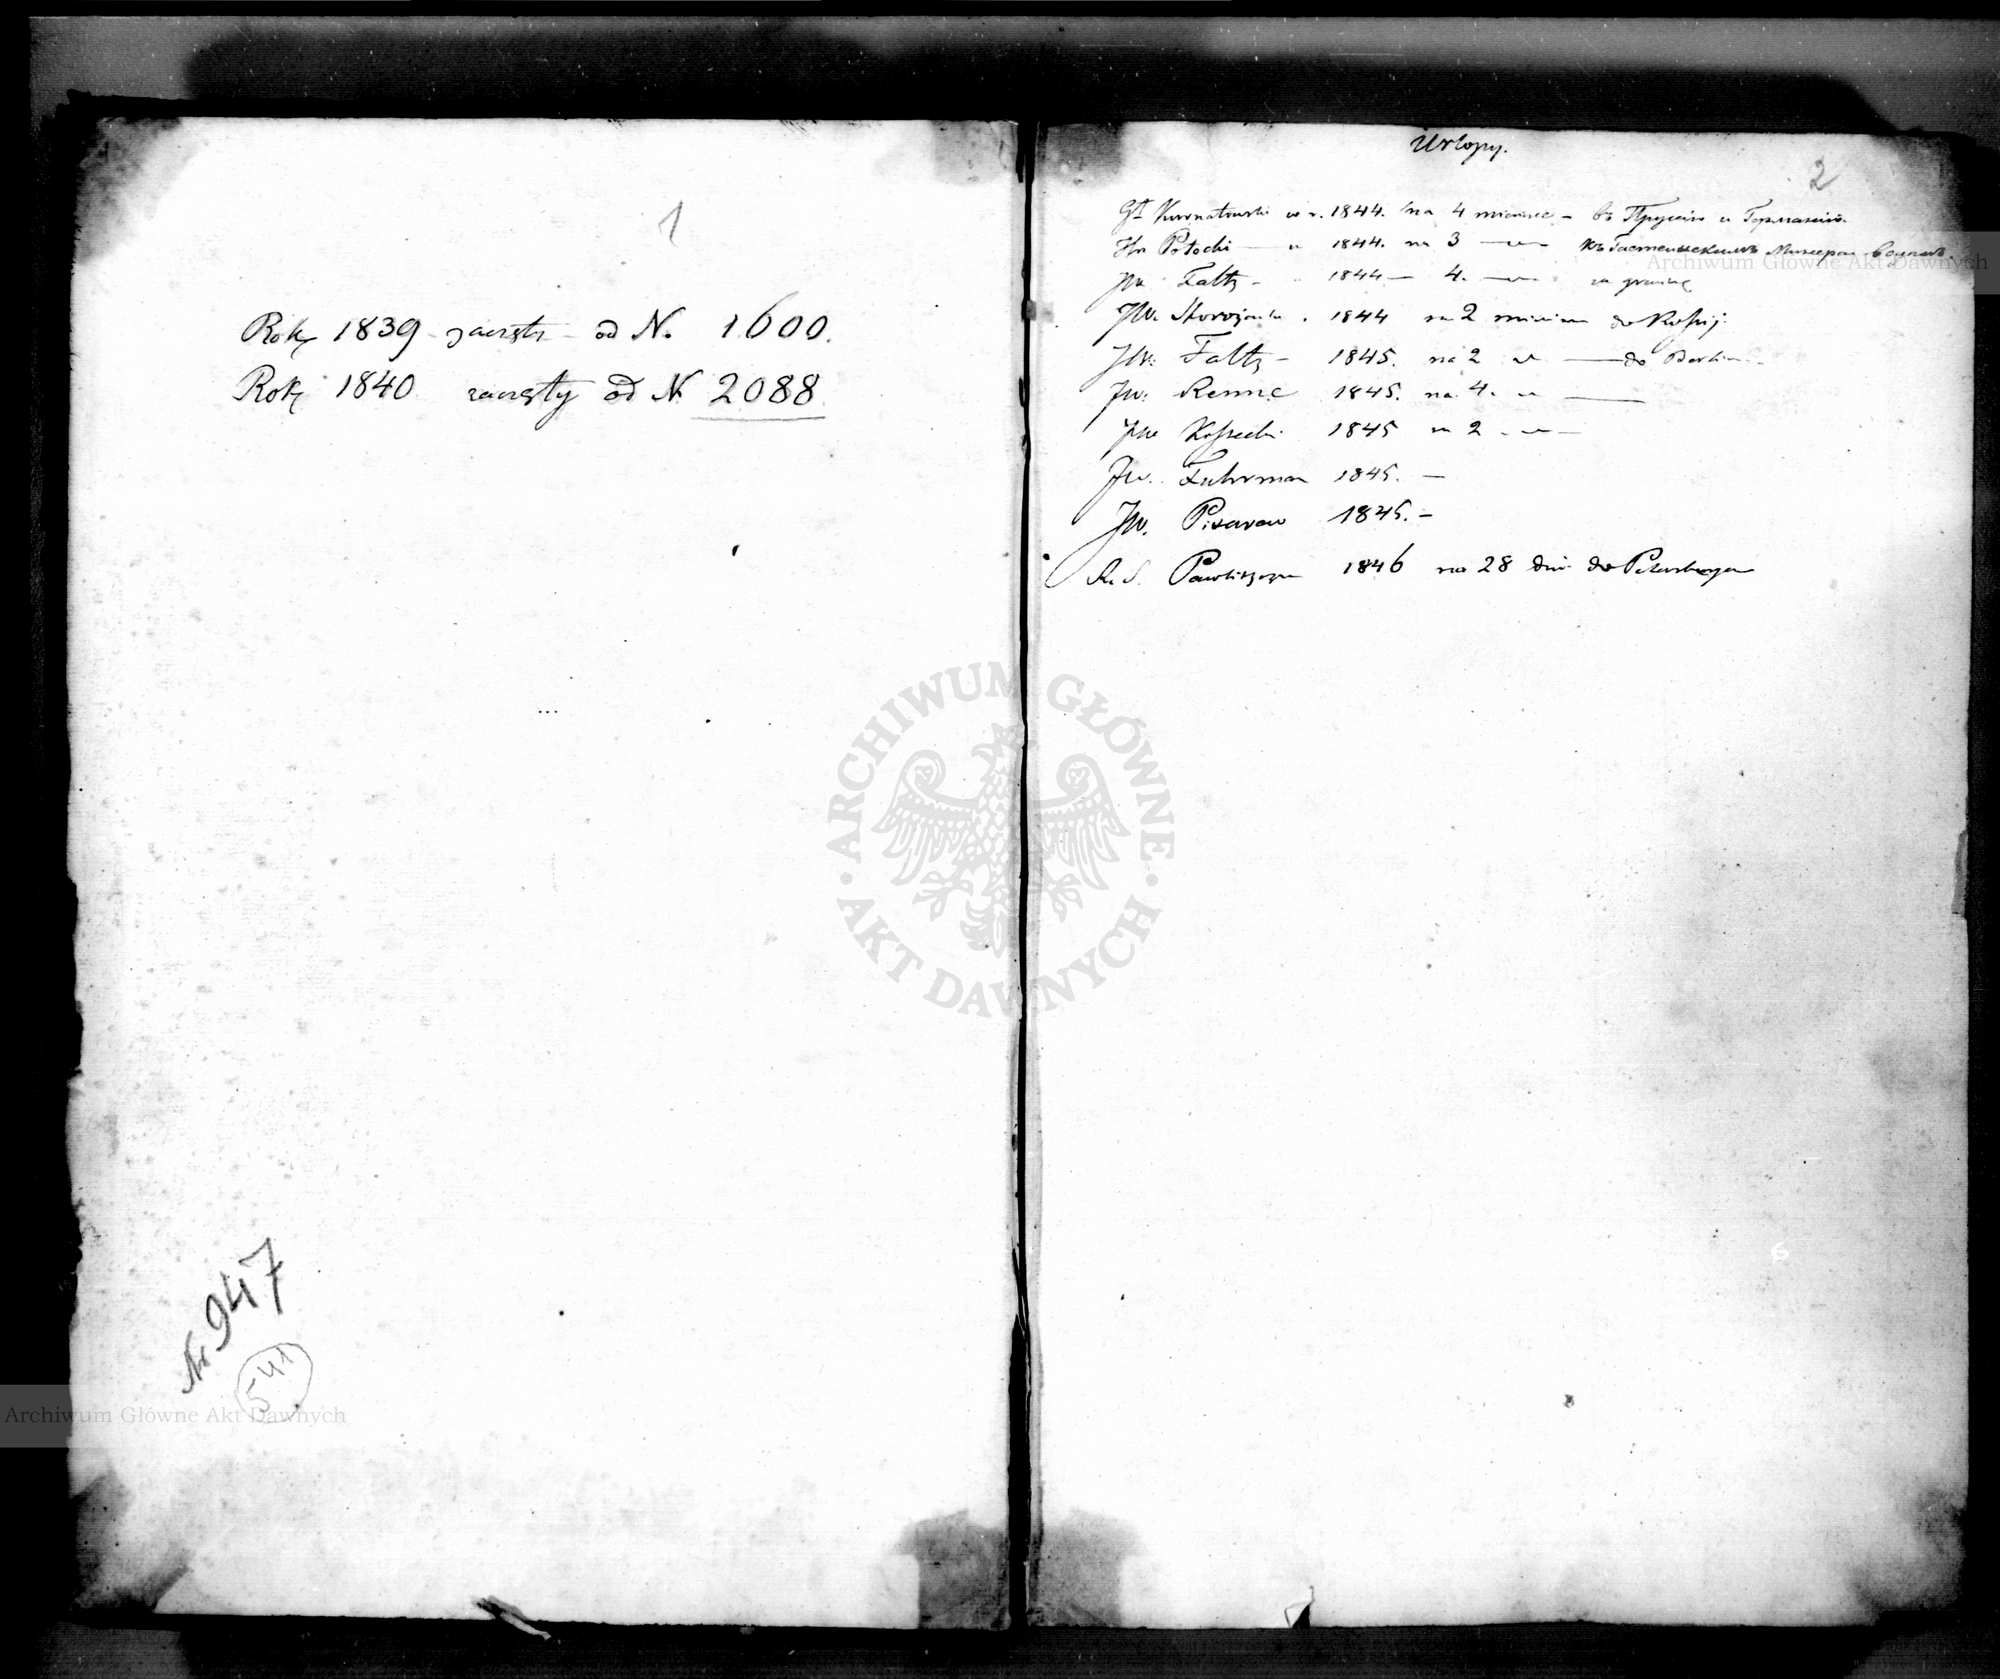 1
Rok 1839 zaczęty od N. 1600.
Rok 1840 zaczęty od N 2088
Nr 947
541
Urlopy.
2
Kurnatowski w r. 1844. na 4 miesiące – въ Пруссію и Германію.
Hr Potocki — " 1844. na 3 — " — къ Гастейнскимъ Минерал. Водамъ.
JW. Faltz – 1844 — 4. — " — za granicę
JW. 1844 na 2 do Rossij.
JW. Faltz – 1845. na 2 " — do Berlina
JW. Renne 1845. na 4. " —
JW Kossecki 1845 na 2 - " —
JW. Fuhrman 1845. —
JW. Pisarew 1845. –
R. S. Pawliszczew 1846 na 28 dni do Petersburga
ARCHIWUM GŁÓWNE AKT DAWNYCH
Archiwum Główne Akt Dawnych
Archiwum Główne Akt Dawnych